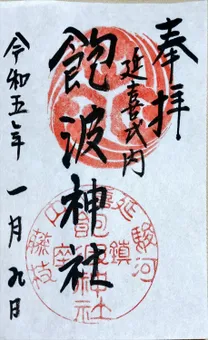 奉拝
延喜式内
飽波神社
令和五年
一月九日
延喜
駿河
鎮座
藤枝
飽波神社